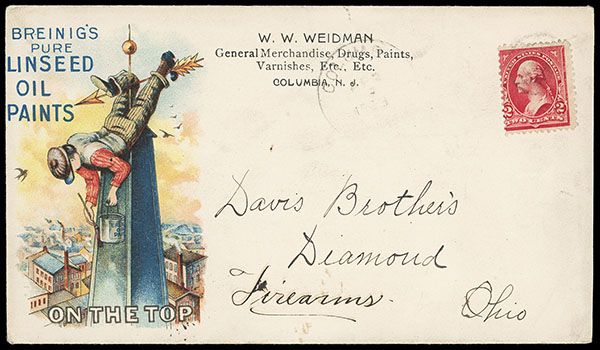 BREINIG'S
PURE
LINSEED
OIL
PAINTS
ON THE TOP
W. W. WEIDMAN
General Merchandise, Drugs, Paints,
Varnishes, Etc., Etc.
COLUMBIA, N. J.
2 TWO CENTS 2
Davis Brothers
Diamond
Firearms. Ohio